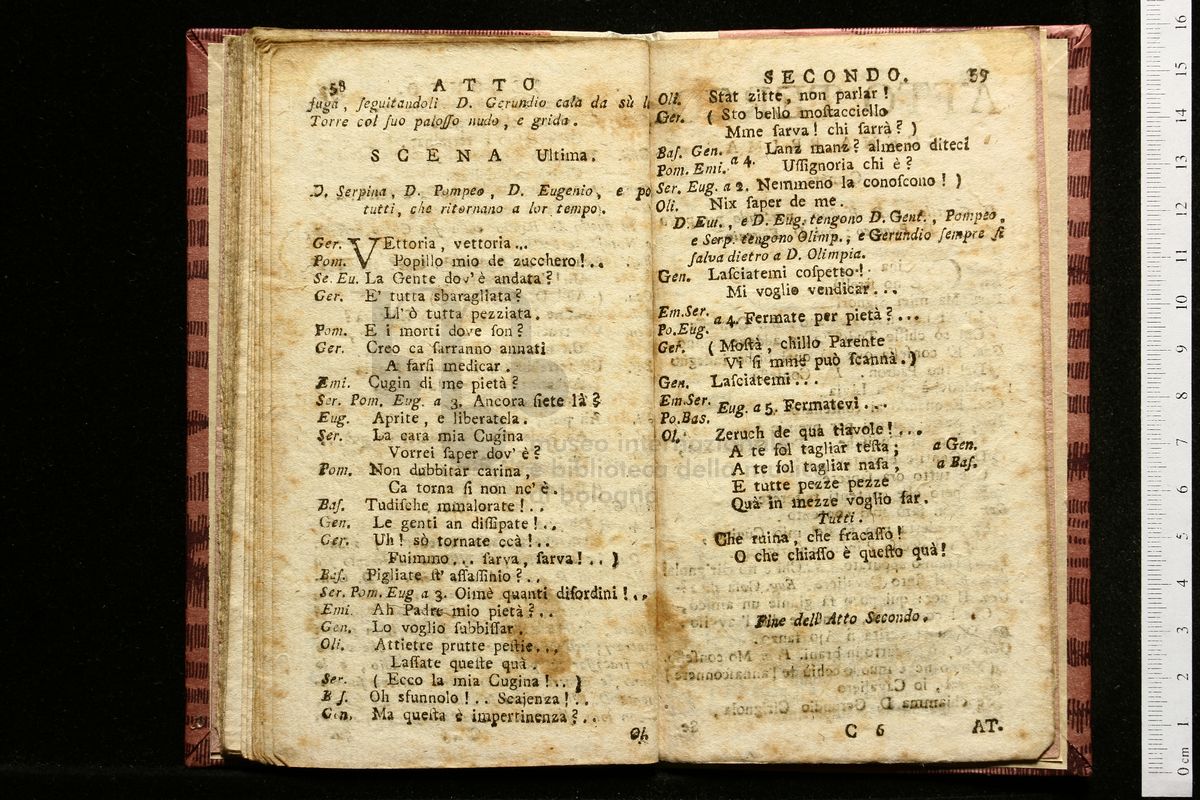 58
ATTO
fuga, ſeguitandoli D. Gerundio cala da sù l
Torre col ſuo paloſſo nudo, e grida.
SCENA Ultima.
D. Serpina, D. Pompeo, D. Eugenio, e po
tutti, che ritornano a lor tempo.
Ger. VEttoria, vettoria...
Pom. Popillo mio de zucchero!..
Se. Eu. La Gente dov' è andata?
Ger. E' tutta sbaragliata?
Ll' ò tutta pezziata.
Pom. E i morti dove ſon?
Ger. Creo ca ſarranno annati
A farſi medicar.
Emi. Cugin di me pietà?
Ser. Pom. Eug. a 3. Ancora ſiete là?
Eug. Aprite, e liberatela.
Ser. La cara mia Cugina
Vorrei ſaper dov' è?
Pom. Non dubbitar carina,
Ca torna ſi non nc' è.
Baſ. Tudiſche mmalorate!..
Gen. Le genti an diſſipate!..
Ger. Uh! sò tornate ccà!..
Fuimmo... ſarva, ſarva!..)
Baſ. Pigliate ſt' aſſaſſinio?..
Ser. Pom. Eug. a 3. Oimè quanti diſordini!..
Emi. Ah Padre mio pietà?..
Gen. Lo voglio ſubbiſſar.
Oli. Attietre prutte peſtie...
Laſſate queſte quà.
Ser. (Ecco la mia Cugina!..)
B ſ. Oh sfunnolo!.. Scajenza!..
Gen. Ma queſta è impertinenza?..
museo internazionale
e biblioteca della
di bologna
SECONDO. 59
Oli. Stat zitte, non parlar!
Ger. (Sto bello moſtacciello
Mme ſarva! chi ſarrà?)
Baſ. Gen. Lanz manz? almeno diteci
Pom. Emi. a 4. Uſſignoria chi è?
Ser. Eug. a 2. Nemmeno la conoſcono!)
Oli. Nix ſaper de me.
D. Em., e D. Eug. tengono D. Gent., Pompeo,
e Serp. tengono Olimp., e Gerundio ſempre ſi
ſalva dietro a D. Olimpia.
Gen. Laſciatemi coſpetto!
Mi voglio vendicar...
Em. Ser.
Po. Eug. a 4. Fermate per pietà?...
Ger. (Moſtà, chillo Parente
Vi ſi mme può ſcannà.)
Gen. Laſciatemi...
Em. Ser.
Po. Bas. Eug. a 5. Fermatevi...
Ol. Zeruch de quà tiavole!...
A te ſol tagliar teſta; a Gen.
A te ſol tagliar naſa; a Baſ.
E tutte pezze pezze
Quà in mezze voglio far.
Tutti.
Che ruina, che fracaſſo!
O che chiaſſo è queſto quà!
Fine dell' Atto Secondo.
C 6
AT.
0 cm 1 2 3 4 5 6 7 8 9 10 11 12 13 14 15 16